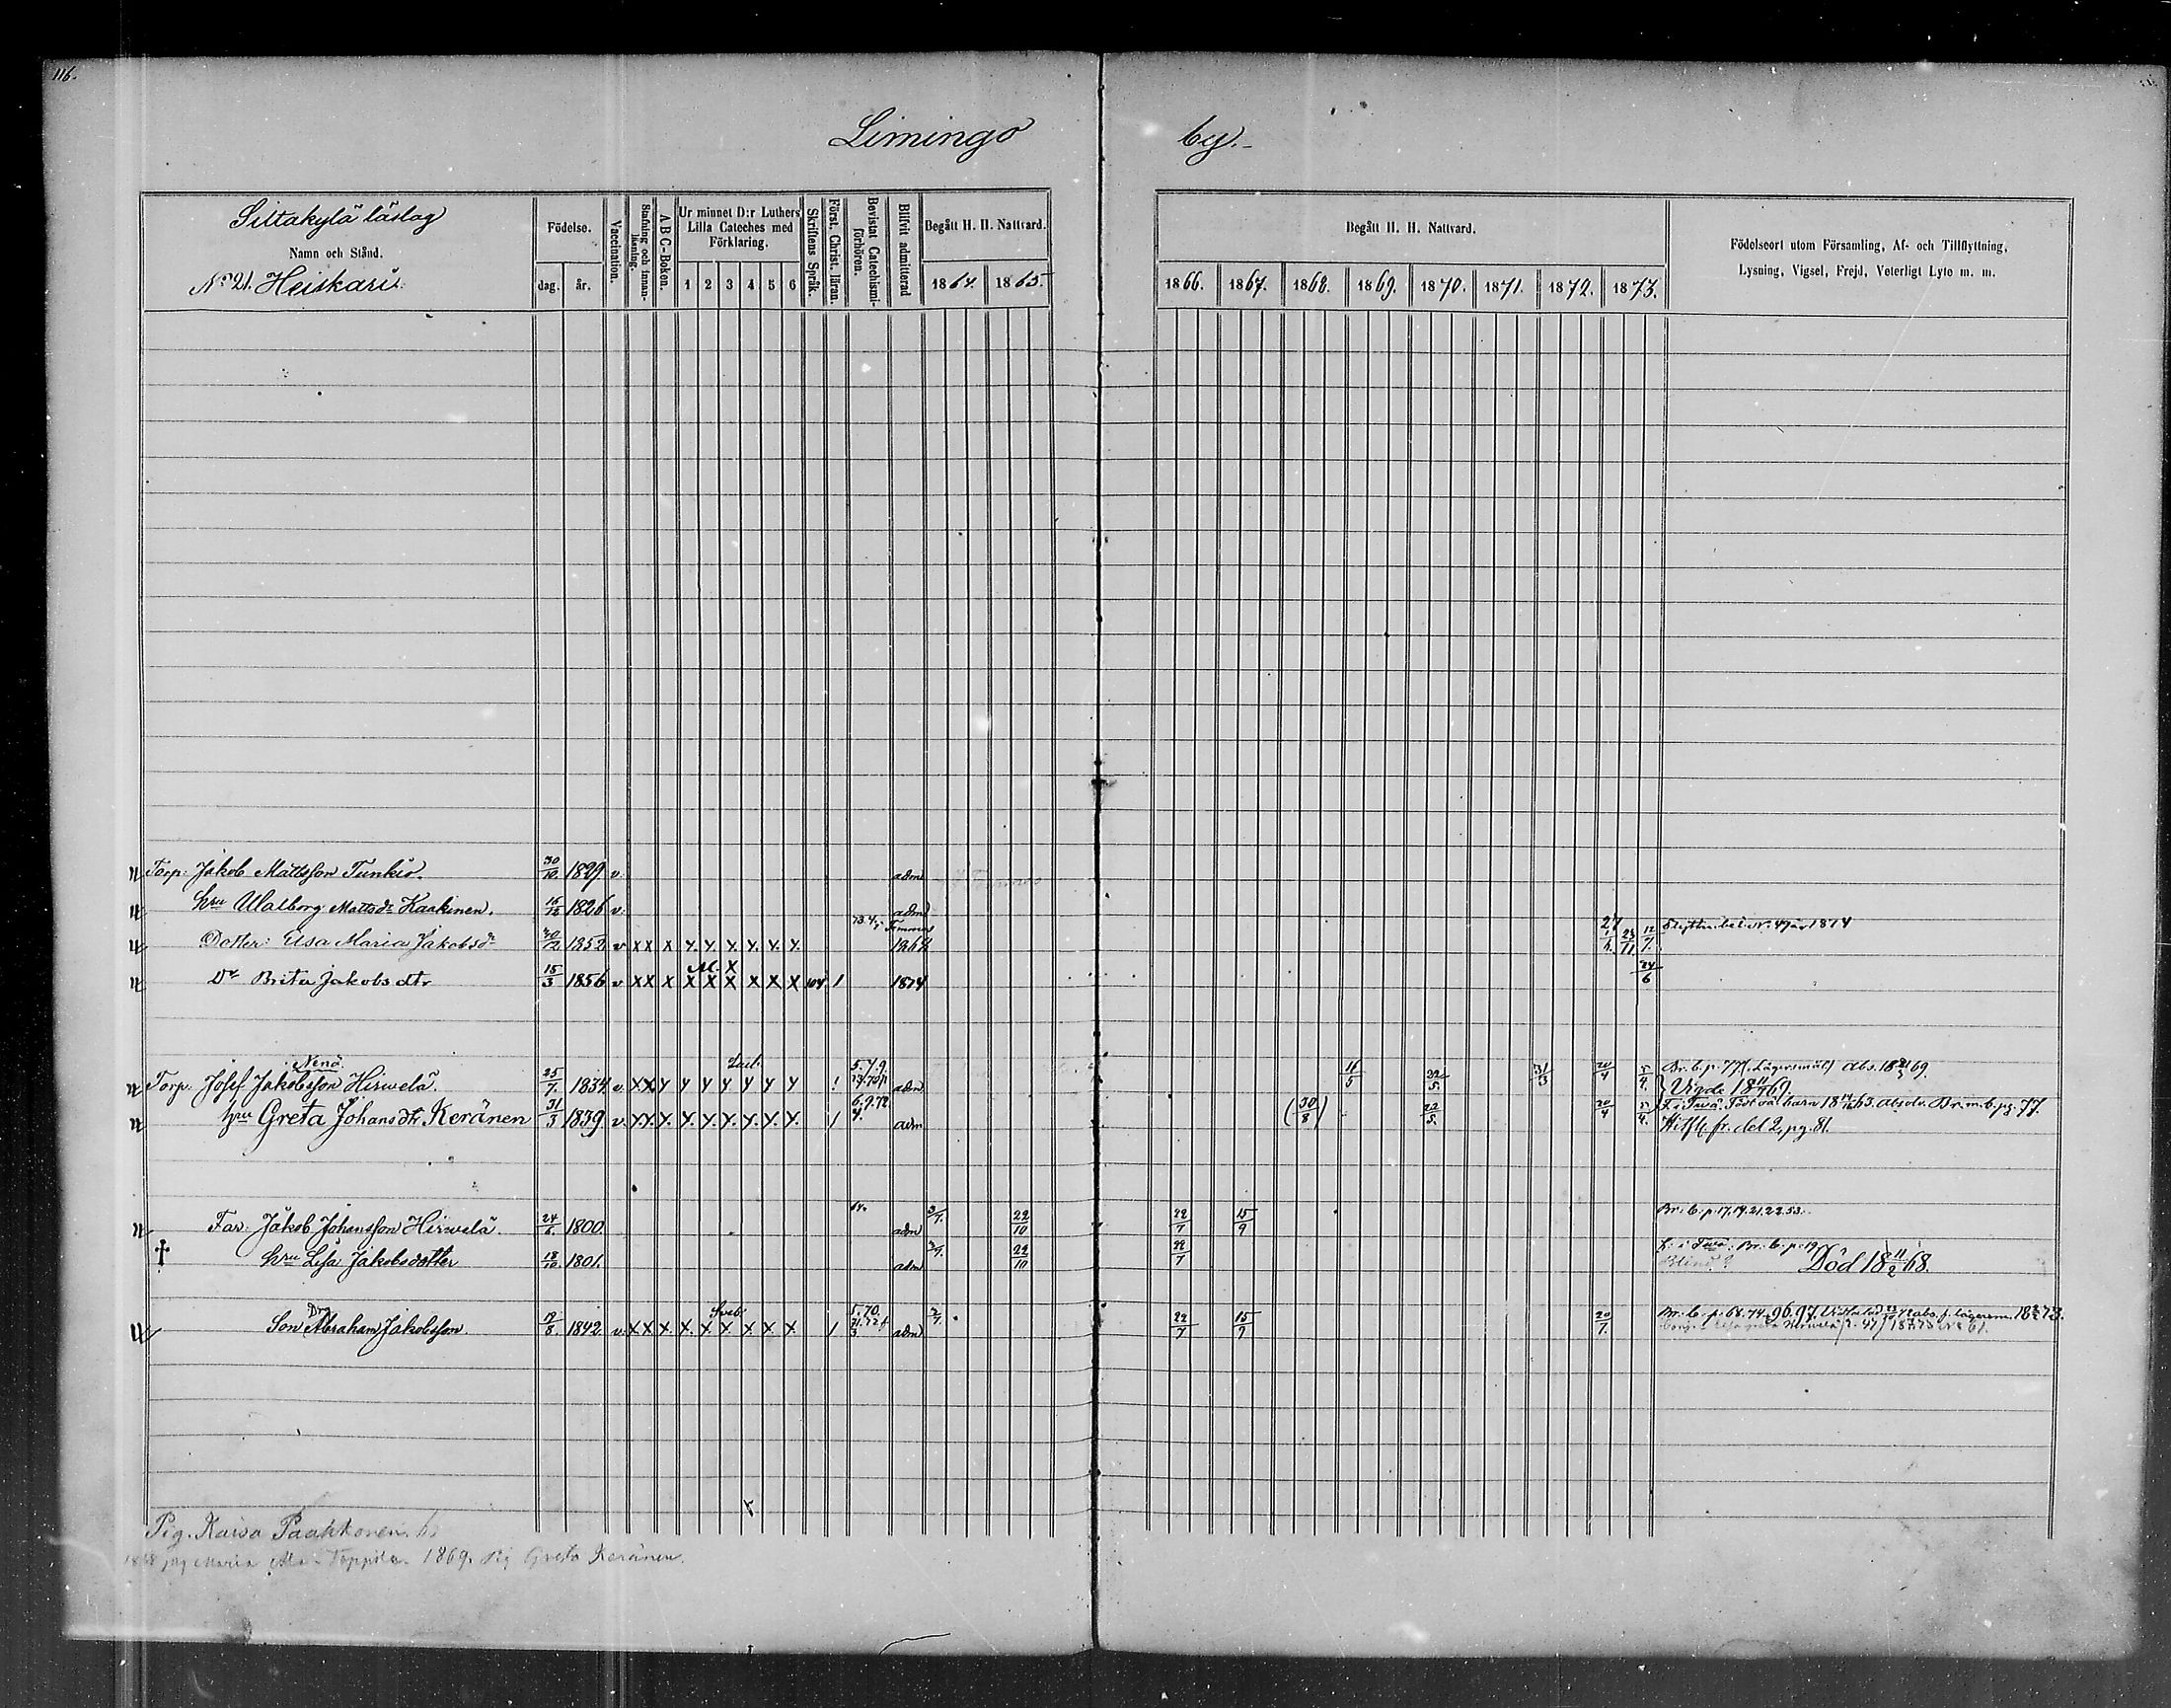 116.
Limingo by.
Siltakylä läslag
Namn och Stånd.
N:o 21. Heiskari.
Födelse.
dag. år.
Vaccination.
Stafning och innanläsning.
A B C-Boken.
Ur minnet D:r Luthers Lilla Cateches med Förklaring.
1 2 3 4 5 6
Skriftens Språk.
Först. Christ. läran.
Bevistat Catechismiförhören.
Blifvit admitterad
Begått H. H. Nattvard.
1864. 1865.
Begått H. H. Nattvard.
1866. 1867. 1868. 1869. 1870. 1871. 1872. 1873.
Födelseort utom Församling, Af- och Tillflyttning,
Lysning, Vigsel, Frejd, Veterligt Lyte m. m.
Torp: Jakob Mattsson Tunkio. 30/10 1829 v. adm
hru Walborg Mattsdr Kaakinen. 1826 v. adm
73.4; Temmes 27
Dotter: Elsa Maria Jakobsdr 30/12 1852 v x x x y. y. y. y. y. y. 1868 23/11 12/7 N: 47 år 1874
M. X 24/6
Dr Brita Jakobsdtr 15/3 1856 v x x x x x x x x x 104 1 1874
Nenä
Torp. Josef Jakobsson Hirwelä. 25/7. 1834 v. x x y y y y y y y 1 5.7.9. adm 16/5 22/5. 31/3 20/4 5/4. Br. b. p. 77 (Lägersmål) abs. 18 69.
} Vigde 18 69
hru Greta Johansdtr Keränen 31/3 1839 v. y. y. y. y. y. y. y. y. y. 1 6.9.72. 4. adm (30/8) 22/5. 20/4 5/4. barn 18 63. absolv. Br. m. b. pg. 77.
Hitfl. fr. del 2, pg. 81.
Far. Jakob Johansson Hirwelä. 24/6. 1800. 64. adm 3/7. 22/10 22/7 15/9 Br. b. p. 17. 19. 21. 22. 53.
† hru Lisa Jakobsdotter 18/10. 1801. adm 3/7. 22/10 22/7 Br. b. p. 19
Blind Död 18 11/2 68.
Dr
Son Abraham Jakobsson. 1842 v. x x x x. x x x x x 1 5.70. 3 adm 3/7. 22/7 15/9 20/7. Br. b. p. 68. 74. 96. 97.
Pig. Kaisa Paakkonen.
1868 pig Maria Ala-Toppila. 1869. Pig Greta Keränen.